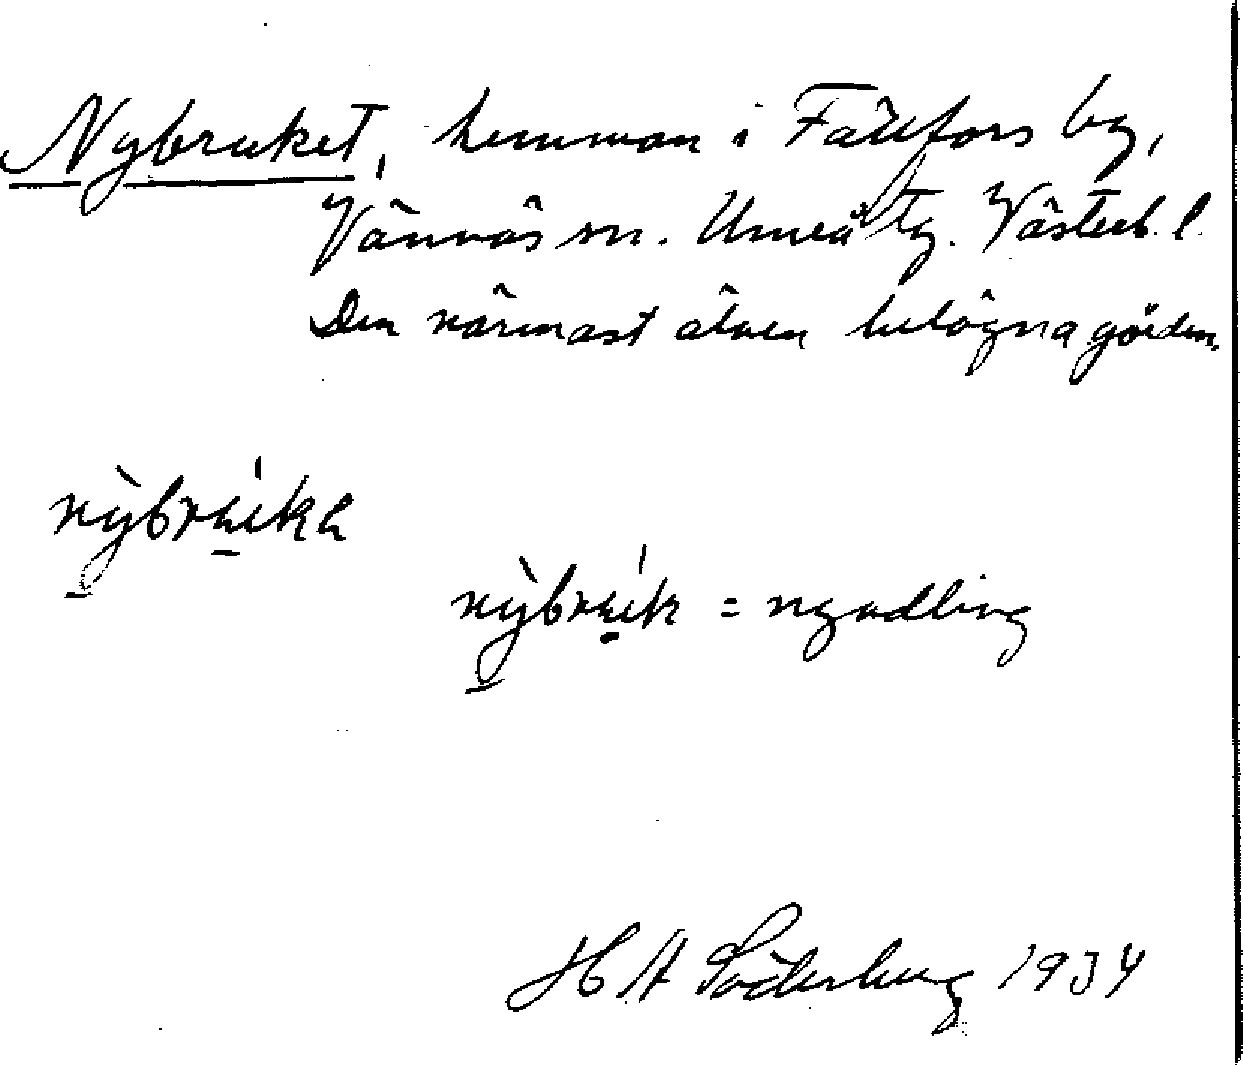 Nybruket, hemman i Fällfors by,
Vännäs sn. Umeå tg. Västerb. l.
Den närmast älven belägna gården.
nỳbrúka
nỳbrúk = nyodling
H A Söderberg 1934